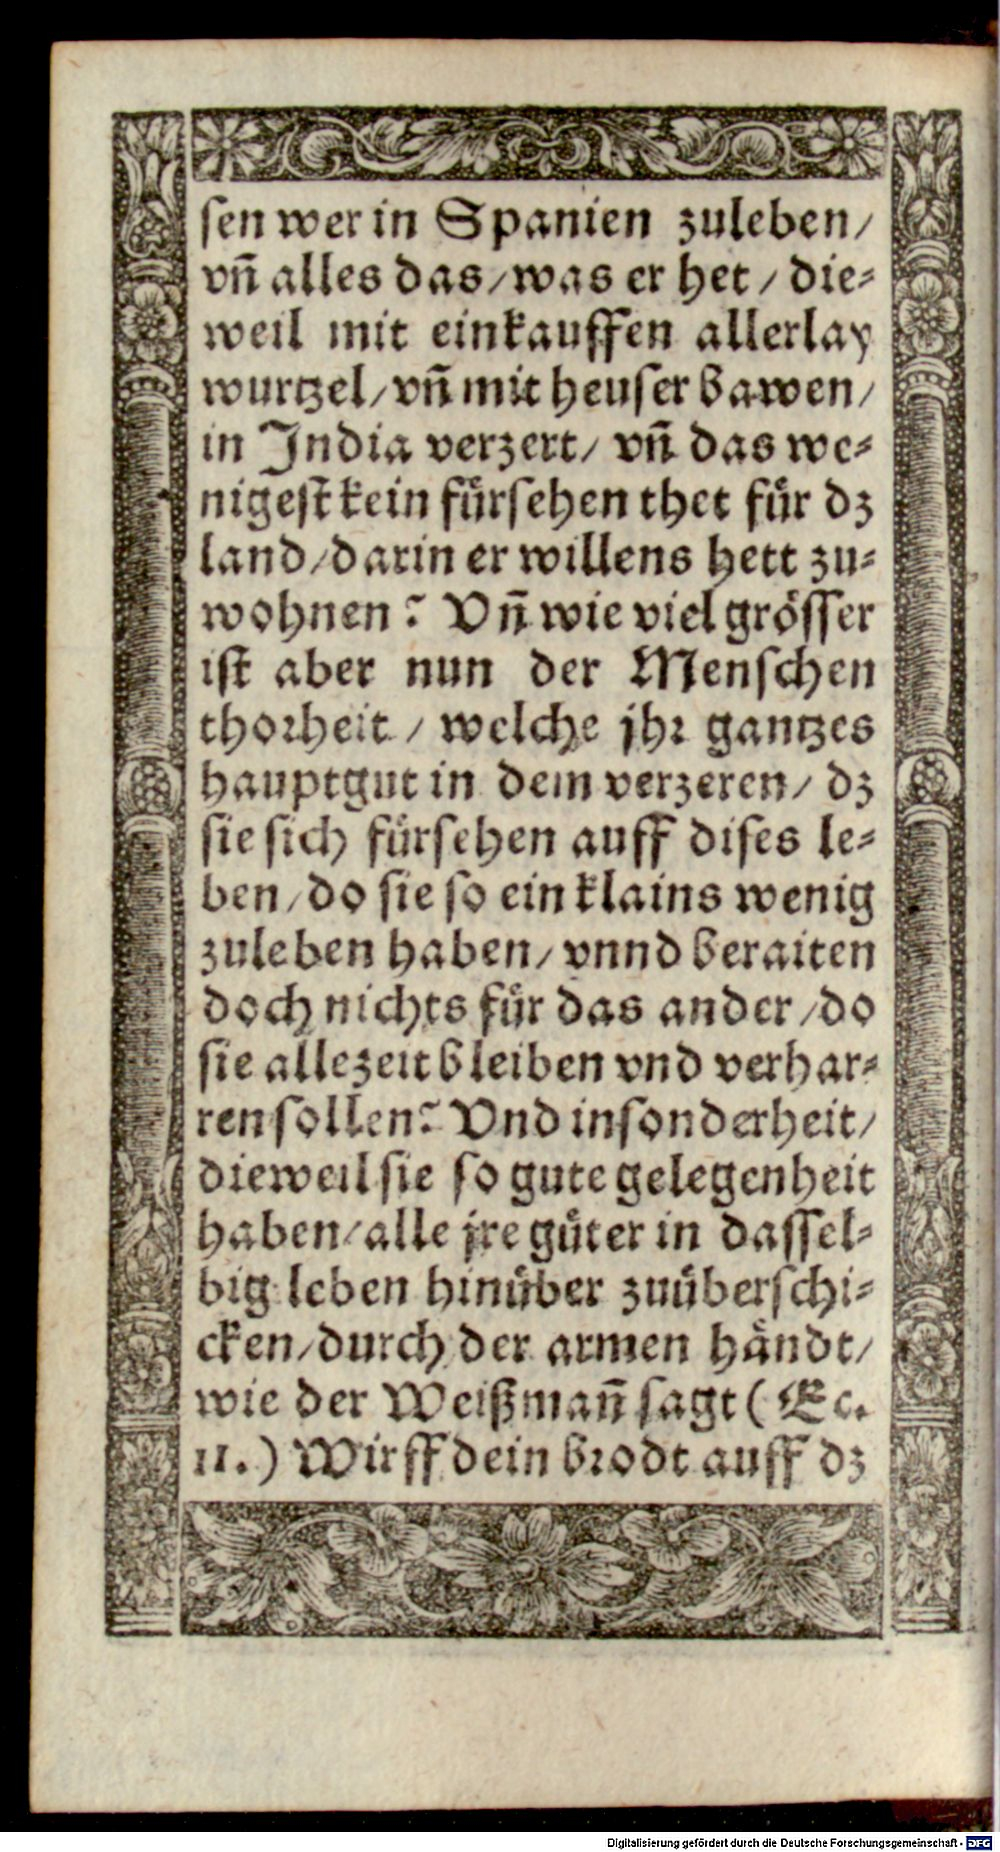 ſen wer in Spanien zuleben/
vñ alles das/was er het/ die⸗
weil mit einkauffen allerlay
wurtzel/vñ mit heuſer bawen/
in India verzert/ vñ das we⸗
nigeſt kein fürſehen thet für dz
land/darin er willens hett zu⸗
wohnen? Vñ wie viel gröſſer
iſt aber nun der Menſchen
thorheit / welche jhr gantzes
hauptgut in dem verzeren/ dz
ſie ſich fürſehen auff diſes le⸗
ben/do ſie ſo ein klains wenig
zuleben haben/ vnnd beraiten
doch nichts für das ander/do
ſie allezeit bleiben vnd verhar⸗
ren ſollen? Vnd inſonderheit/
dieweil ſie ſo gute gelegenheit
haben/alle jre güter in daſſel⸗
big leben hinüber zuüberſchi⸗
cken/durch der armen händt/
wie der Weißmañ ſagt ( Ec.
11.) Wirff dein brodt auff dz
Digitalisierung gefördert durch die Deutsche Forschungsgemeinschaft - DFG